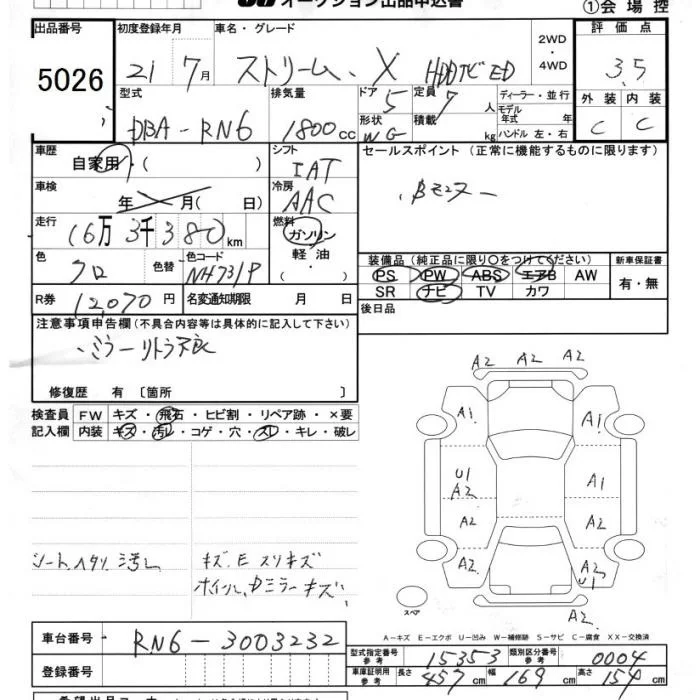 オークション出品申込書 ①会場控
出品番号 初度登録年月 車名・グレード 2WD ・4WD 評価点
5026 21 7月 ストリーム X HDDナビED 3.5
型式 排気量 ドア 5 定員 7人 ディーラー・並行 外装 内装
DBA-RN6 1800cc 形状 WG 積載 kg モデル年式 年 ハンドル 左・右 C C
車歴 自家用・( ) シフト IAT セールスポイント (正常に機能するものに限ります)
車検 年 月( 日) 冷房 AAC Bモニター
走行 16万3千380km 燃料 ガソリン 軽油 ・( )
色 クロ 色替 色コード NH731P
装備品(純正品に限り○をつけてください) 新車保証書
PS PW ABS エアB AW 有・無
SR ナビ TV カワ
R券 12,070円 名変通知期限 月 日 後日品
注意事項申告欄(不具合内容等は具体的に記入して下さい)
ミラーリトラ不良
修復歴 有 〔箇所 〕
検査員 FW キズ・飛石・ヒビ割・リペア跡・×要
記入欄 内装 キズ・汚レ・コゲ・穴・スレ・キレ・破レ
A2 A2 A2
A1 A1
U1 A2 A1
A2 A2
A2 A2 U1
A2
シートヘタリ汚レ キズ.E スリキズ
ホイール,Dミラーキズ
スペア
A-キズ E-エクボ U-凹み W-補修跡 S-サビ C-腐食 XX-交換済
車台番号 RN6-3003232
型式指定番号 参考 15353 類別区分番号 参考 0004
登録番号 車庫証明用 参考 長さ 457cm 幅 169cm 高さ 154cm
希望出品コーナー